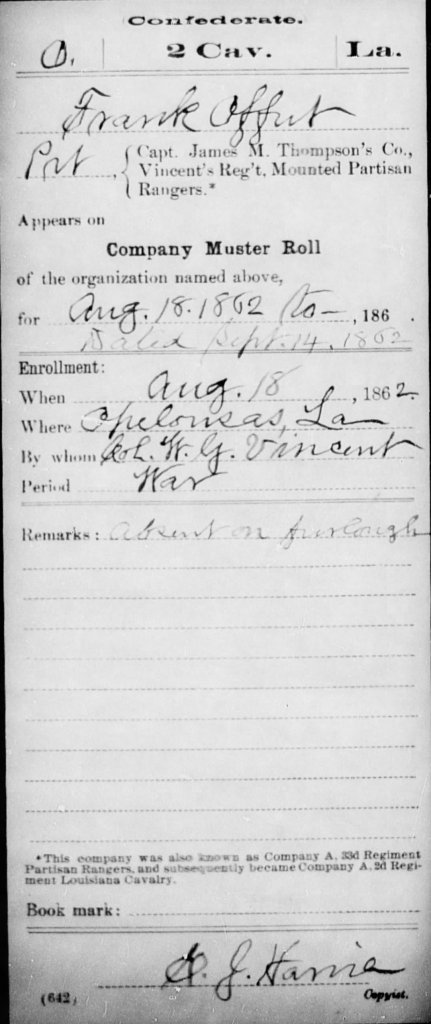 Confederate.
O. 2 Cav. La.
Frank Offut
Pvt , { Capt. James M. Thompson's Co.,
Vincent's Reg't, Mounted Partisan
Rangers.*
Appears on
Company Muster Roll
of the organization named above,
for Aug. 18. 1862 to — , 186 .
Dated Sept. 14, 1862
Enrollment:
When Aug. 18 , 1862.
Where Opelousas, La
By whom Col. W. G. Vincent
Period War
Remarks: Absent on furlough
*This company was also known as Company A, 33d Regiment
Partisan Rangers, and subsequently became Company A, 2d Regi-
ment Louisiana Cavalry.
Book mark:
J. Harris
(642) Copyist.